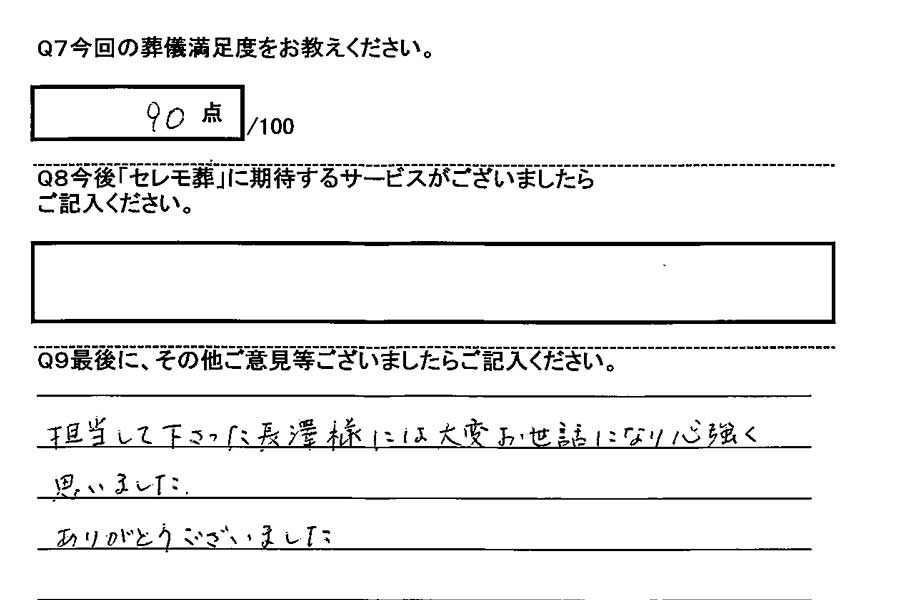 Q7今回の葬儀満足度をお教えください。
90 点 /100
Q8今後「セレモ葬」に期待するサービスがございましたら
ご記入ください。
Q9最後に、その他ご意見等ございましたらご記入ください。
担当して下さった長澤様には大変お世話になり心強く
思いました.
ありがとうございました